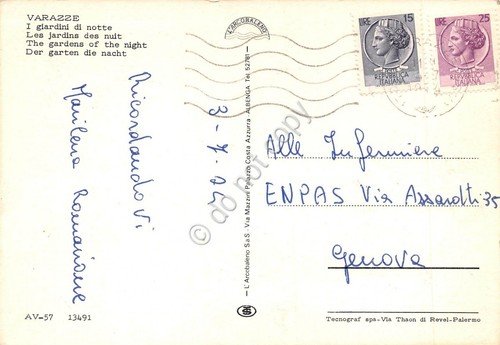 VARAZZE
I giardini di notte
Les jardins des nuit
The gardens of the night
Der garten die nacht
L'ARCOBALENO
LIRE 15
REPUBBLICA
ITALIANA
LIRE 25
REPUBBLICA
ITALIANA
Ricordandovi
Marilena Romairone
3-7-75
Alle Infermiere
ENPAS Via Assarotti 35
Genova
L'Arcobaleno S.a.S. Via Mazzini Palazzo Costa Azzurra - ALBENGA Tel. 52781
© do not copy
AV-57 13491
Tecnograf spa-Via Thaon di Revel-Palermo